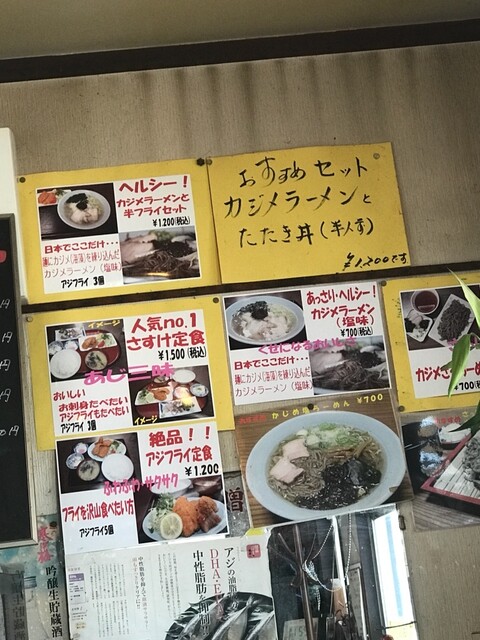 ヘルシー！
カジメラーメンと
半フライセット
￥1,200(税込)
日本でここだけ・・・
麺にカジメ(海藻)を練り込んだ
カジメラーメン（塩味）
アジフライ 3個
おすすめ セット
カジメラーメンと
たたき丼（半人前）
￥1,200です
人気no.1
さすけ定食
￥1,500(税込)
イメージ
あじ三昧
おいしい
お刺身たべたい
アジフライもたべたい
アジフライ 3個
イメージ
絶品！！
アジフライ定食
￥1,200
ふわふわ・サクサク
フライを沢山食べたい方
アジフライ5個
あっさり・ヘルシー！
カジメラーメン
（塩味）
￥700(税込)
くせになるおいしさ
日本でここだけ・・・
麺にカジメ(海藻)を練り込んだ
カジメラーメン（塩味）
かじめらーめん ￥700
￥700
アジの油脂
DHA・E
中性脂肪を抑制
吟醸生貯蔵酒